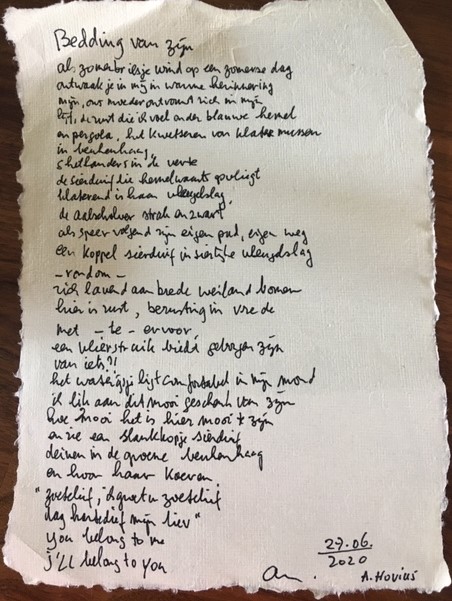 Bedding van zijn
als zomerbriesje wind op een zomerse dag
ontwaak je in mij in warme herinnering
mijn, ons moeder ontvouwt zich in mij
die ik voel onder blauwe hemel
en pergola, het kwetteren van mussen
in beukenhaag,
shetlanders in de verte
de sierduif die hemelwaarts opvliegt
klaterend is haar vleugelslag,
de aalscholver strak en zwart
als speer volgend zijn eigen pad, eigen weg
een koppel sierduif in sierlijke vleugelslag
- rondom -
zich lavend aan brede weiland bomen
hier is rust, berusting in vrede
met - te - ervoor
een vlierstruik biedt geborgen zijn
van iets?!
het waterijsje ligt comfortabel in mijn mond
ik lik aan dit mooi geschenk van zijn
hoe mooi het is hier mooi te zijn
en zie een slank kopje sierduif
deinen in de groene beukenhaag
en hoor haar koeren
"zoetelief, 'k groet u zoetelief
dag hartedief mijn lief"
you belong to me
I'll belong to you
27.06.
2020
A. Hovius